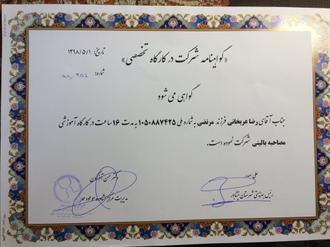 «گواهینامه شرکت در کارگاه تخصصی»
تاریخ: ۱۳۹۸/۵/۱
شماره:
گواهی می شود
جناب آقای رضا عریخانی فرزند مرتضی به شماره ملی ۱۰۵۰۸۸۷۴۲۵ به مدت ۱۶ ساعت در کارگاه آموزشی
مصاحبه بالینی شرکت نموده است.
رئیس بهزیستی شهرستان نیشابور